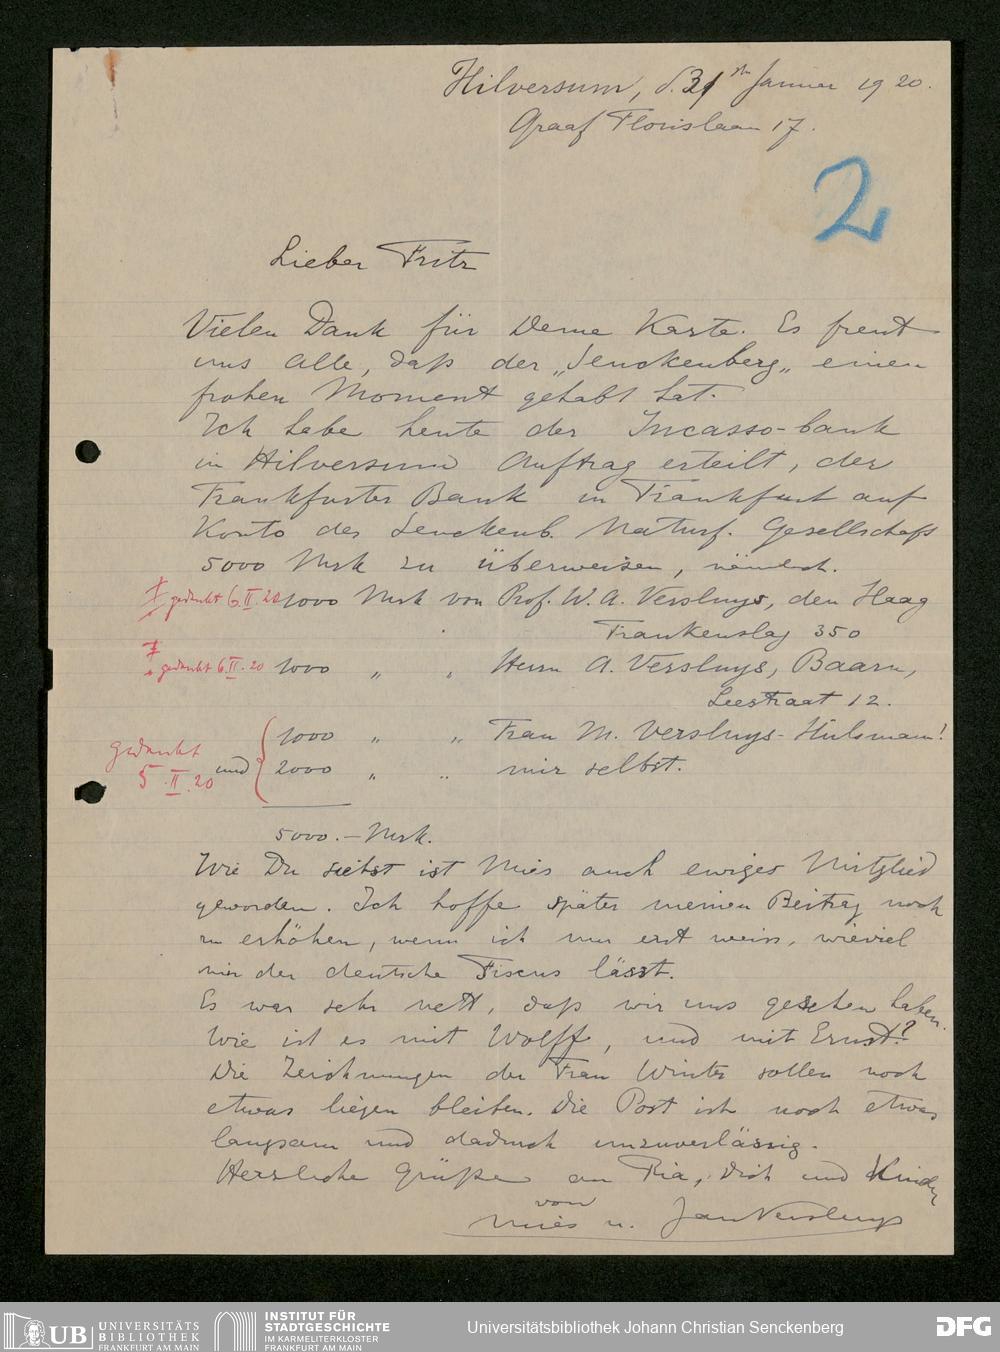 Hilversum, d. 31ten Januar 1920.
Graaf Florislaan 17.
2
Lieber Fritz
Vielen Dank für Deine Karte. Es freut
uns alle, daß der „Senckenberg„ einen
frohen Moment gehabt hat.
Ich habe heute der Incasso-bank
in Hilversum Auftrag erteilt, der
Frankfurter Bank in Frankfurt auf
Konto der Senckenb. Naturf. Gesellschaft
5000 Mrk zu überweisen, nämlich.
gedankt 6.II.20 1000 Mrk von Prof. W. A. Versluys, den Haag
Frankenslag 350
gedankt 6.II.20 1000 „ „ Herrn A. Versluys, Baarn,
Leestraat 12.
1000 „ „ Frau M. Versluys-Hülsmann!
gedankt 5.II.20 und 2000 „ „ mir selbst.
5000.– Mrk.
Wie Du siehst ist Mies auch ewiges Mitglied
geworden. Ich hoffe später meinen Beitrag noch
zu erhöhen, wenn ich nur erst weiss, wieviel
mir der deutsche Fiscus lässt.
Es war sehr nett, daß wir uns gesehen haben.
Wie ist es mit Wolff, und mit Ernst?
Die Zeichnungen der Frau Winter sollen noch
etwas liegen bleiben. Die Post ist noch etwas
langsam und dadurch unzuverlässig.
Herzliche Grüße an Ria, Dich und Kinder
von
Mies u. Jan Versluys
UB UNIVERSITÄTS
BIBLIOTHEK
FRANKFURT AM MAIN
INSTITUT FÜR
STADTGESCHICHTE
IM KARMELITERKLOSTER
FRANKFURT AM MAIN
Universitätsbibliothek Johann Christian Senckenberg
DFG